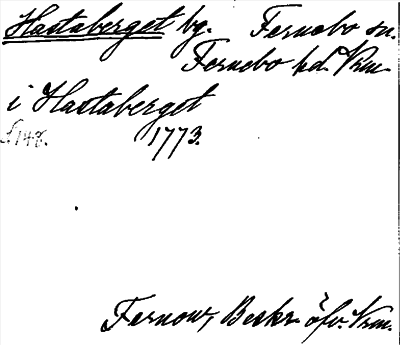 Hastaberget by. Fernebo sn.
Fernebo hd. Vrm.
i Hastaberget
s. 148. 1773.
Fernow, Beskr. öfv. Vrm.